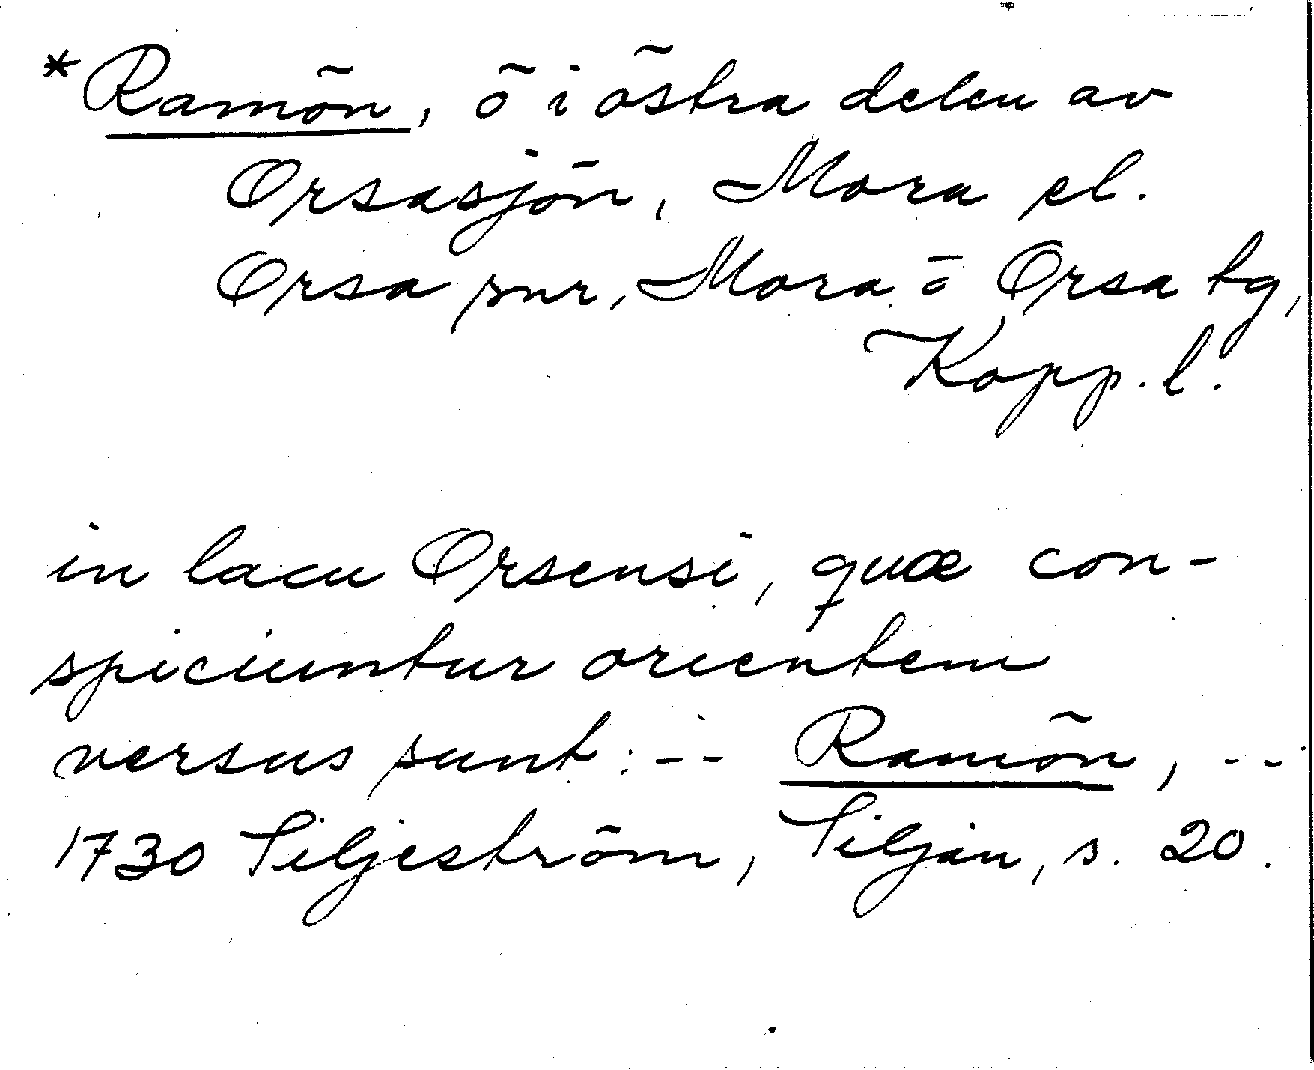 *Ramön, ö i östra delen av
Orsasjön, Mora el.
Orsa snr, Mora o Orsa tg,
Kopp. l.
in lacu Orsensi, quæ con-
spiciuntur orientem
versus sunt: -- Ramön, --
1730 Siljeström, Siljan, s. 20.